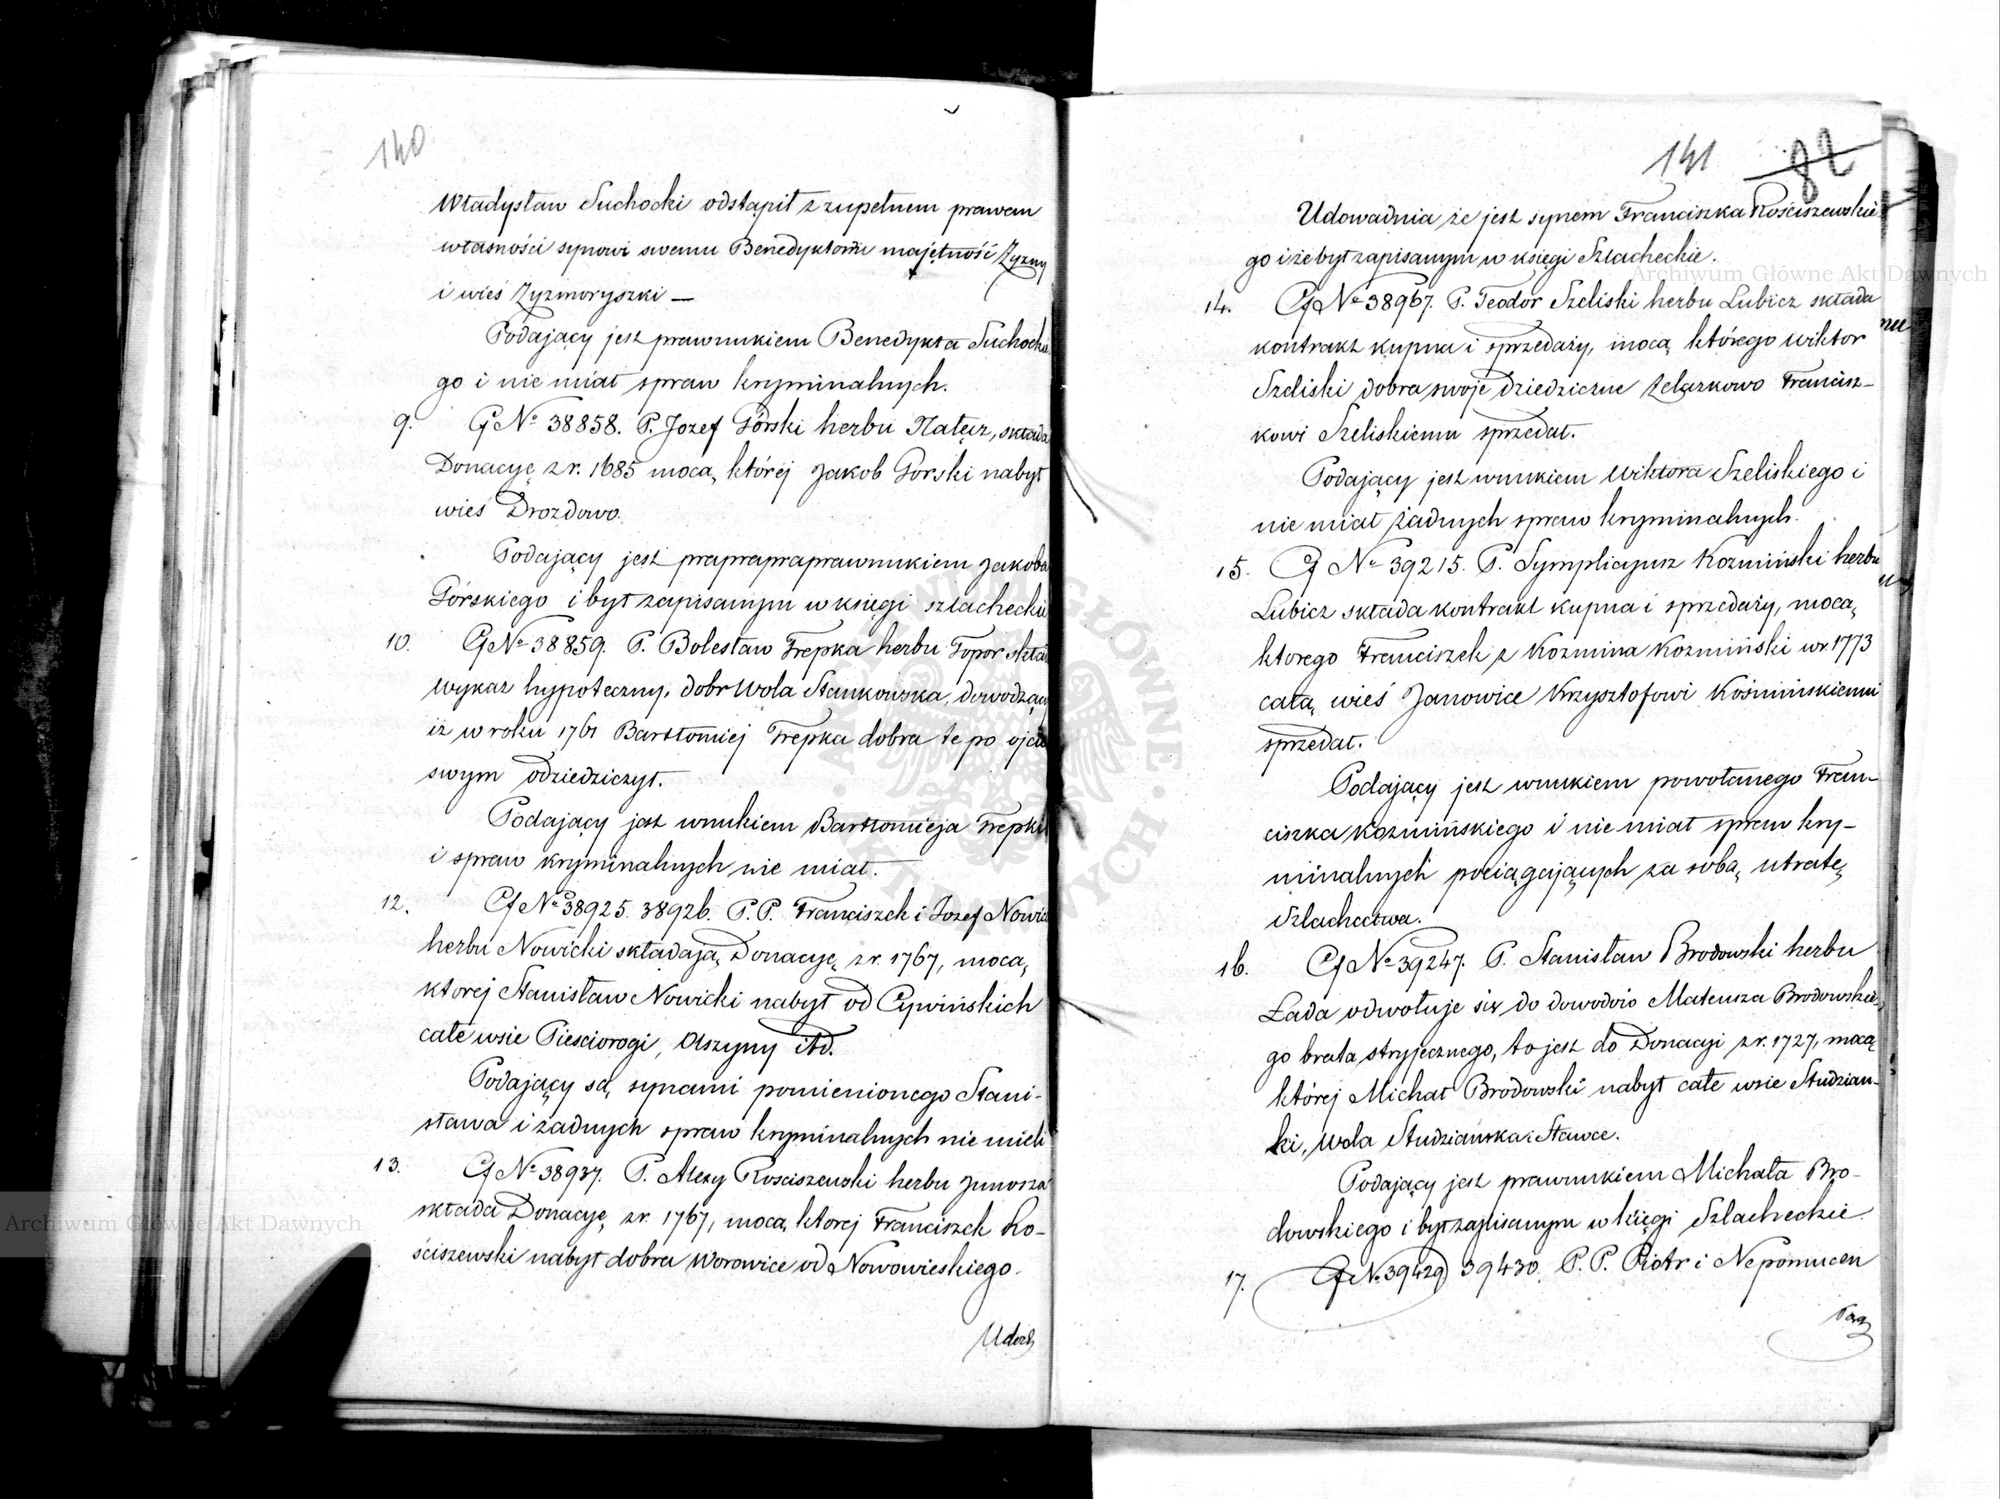 140
Władysław Suchocki odstąpił z zupełnem prawem
własności synowi swemu Benedyktowi majętność Zyzmy
i wieś Zyzmoryszki —
Podający jest prawnukiem Benedykta Suchockie
go i nie miał spraw kryminalnych.
9. Cf No 38858. P. Jozef Górski herbu Nałęcz, składa
Donacyę z r. 1685 mocą której Jakob Gorski nabył
wieś Drozdowo.
Podający jest praprapraprawnukiem Jakoba
Górskiego i był zapisanym w księgi szlacheckie
10. Cf No 38859. P. Bolesław Trepka herbu Topor skła
wykaz hypoteczny, dobr Wola Stankowska, dowodzący
iż w roku 1761 Bartłomiej Trepka dobra te po ojcu
swym odziedziczył.
Podający jest wnukiem Bartłomieja Trepki
i spraw kryminalnych nie miał.
12. Cf No 38925. 38926. P.P. Franciszek i Jozef Nowic
herbu Nowicki składają Donacyę z r. 1767, mocą
ktorej Stanisław Nowicki nabył od Cywińskich
całe wsie Piesciorogi, Olszyny itd.
Podający są synami pomienionego Stani-
sława i żadnych spraw kryminalnych nie mieli
13. Cf No 38937. P. Alexy Rosciszewski herbu Junosza
składa Donacyę z r. 1767, mocą ktorej Franciszek Ro-
ściszewski nabył dobra Worowice od Nowowieskiego.
141 82
Udowadnia że jest synem Franciszka Rościszewskie
go i że był zapisanym w księgi Szlacheckie.
14. Cf No 38967. P. Teodor Szeliski herbu Lubicz składa
kontrakt kupna i sprzedaży, mocą którego Wiktor
Szeliski dobra swoje dziedziczne Żelazkowo Francisz-
kowi Szeliskiemu sprzedał.
Podający jest wnukiem Wiktora Szeliskiego i
nie miał żadnych spraw kryminalnych.
15. Cf No 39215. P. Symplicyusz Kozmiński herbu
Lubicz składa kontrakt kupna i sprzedaży, mocą
ktorego Franciszek z Kozmina Kozmiński w r 1773
całą wieś Janowice Krzysztofowi Kośmińskiemu
sprzedał.
Podający jest wnukiem powołanego Fran-
ciszka Kozmińskiego i nie miał spraw kry-
minalnych pociągających za sobą utratę
Szlachectwa.
16. Cf No 39247. P. Stanisław Brodowski herbu
Łada odwołuje się do dowodów Mateusza Brodowskie-
go brata stryjecznego, to jest do Donacyi z r. 1727, mocą
której Michał Brodowski nabył całe wsie Studzian-
ki, Wola Studzianska i Stawce.
Podający jest prawnukiem Michała Bro-
dowskiego i był zapisanym w księgi Szlacheckie.
17. Cf No 39429 39430. P.P. Piotr i Nepomucen
Archiwum Główne Akt Dawnych
Archiwum Główne Akt Dawnych
ARCHIWUM GŁÓWNE AKT DAWNYCH